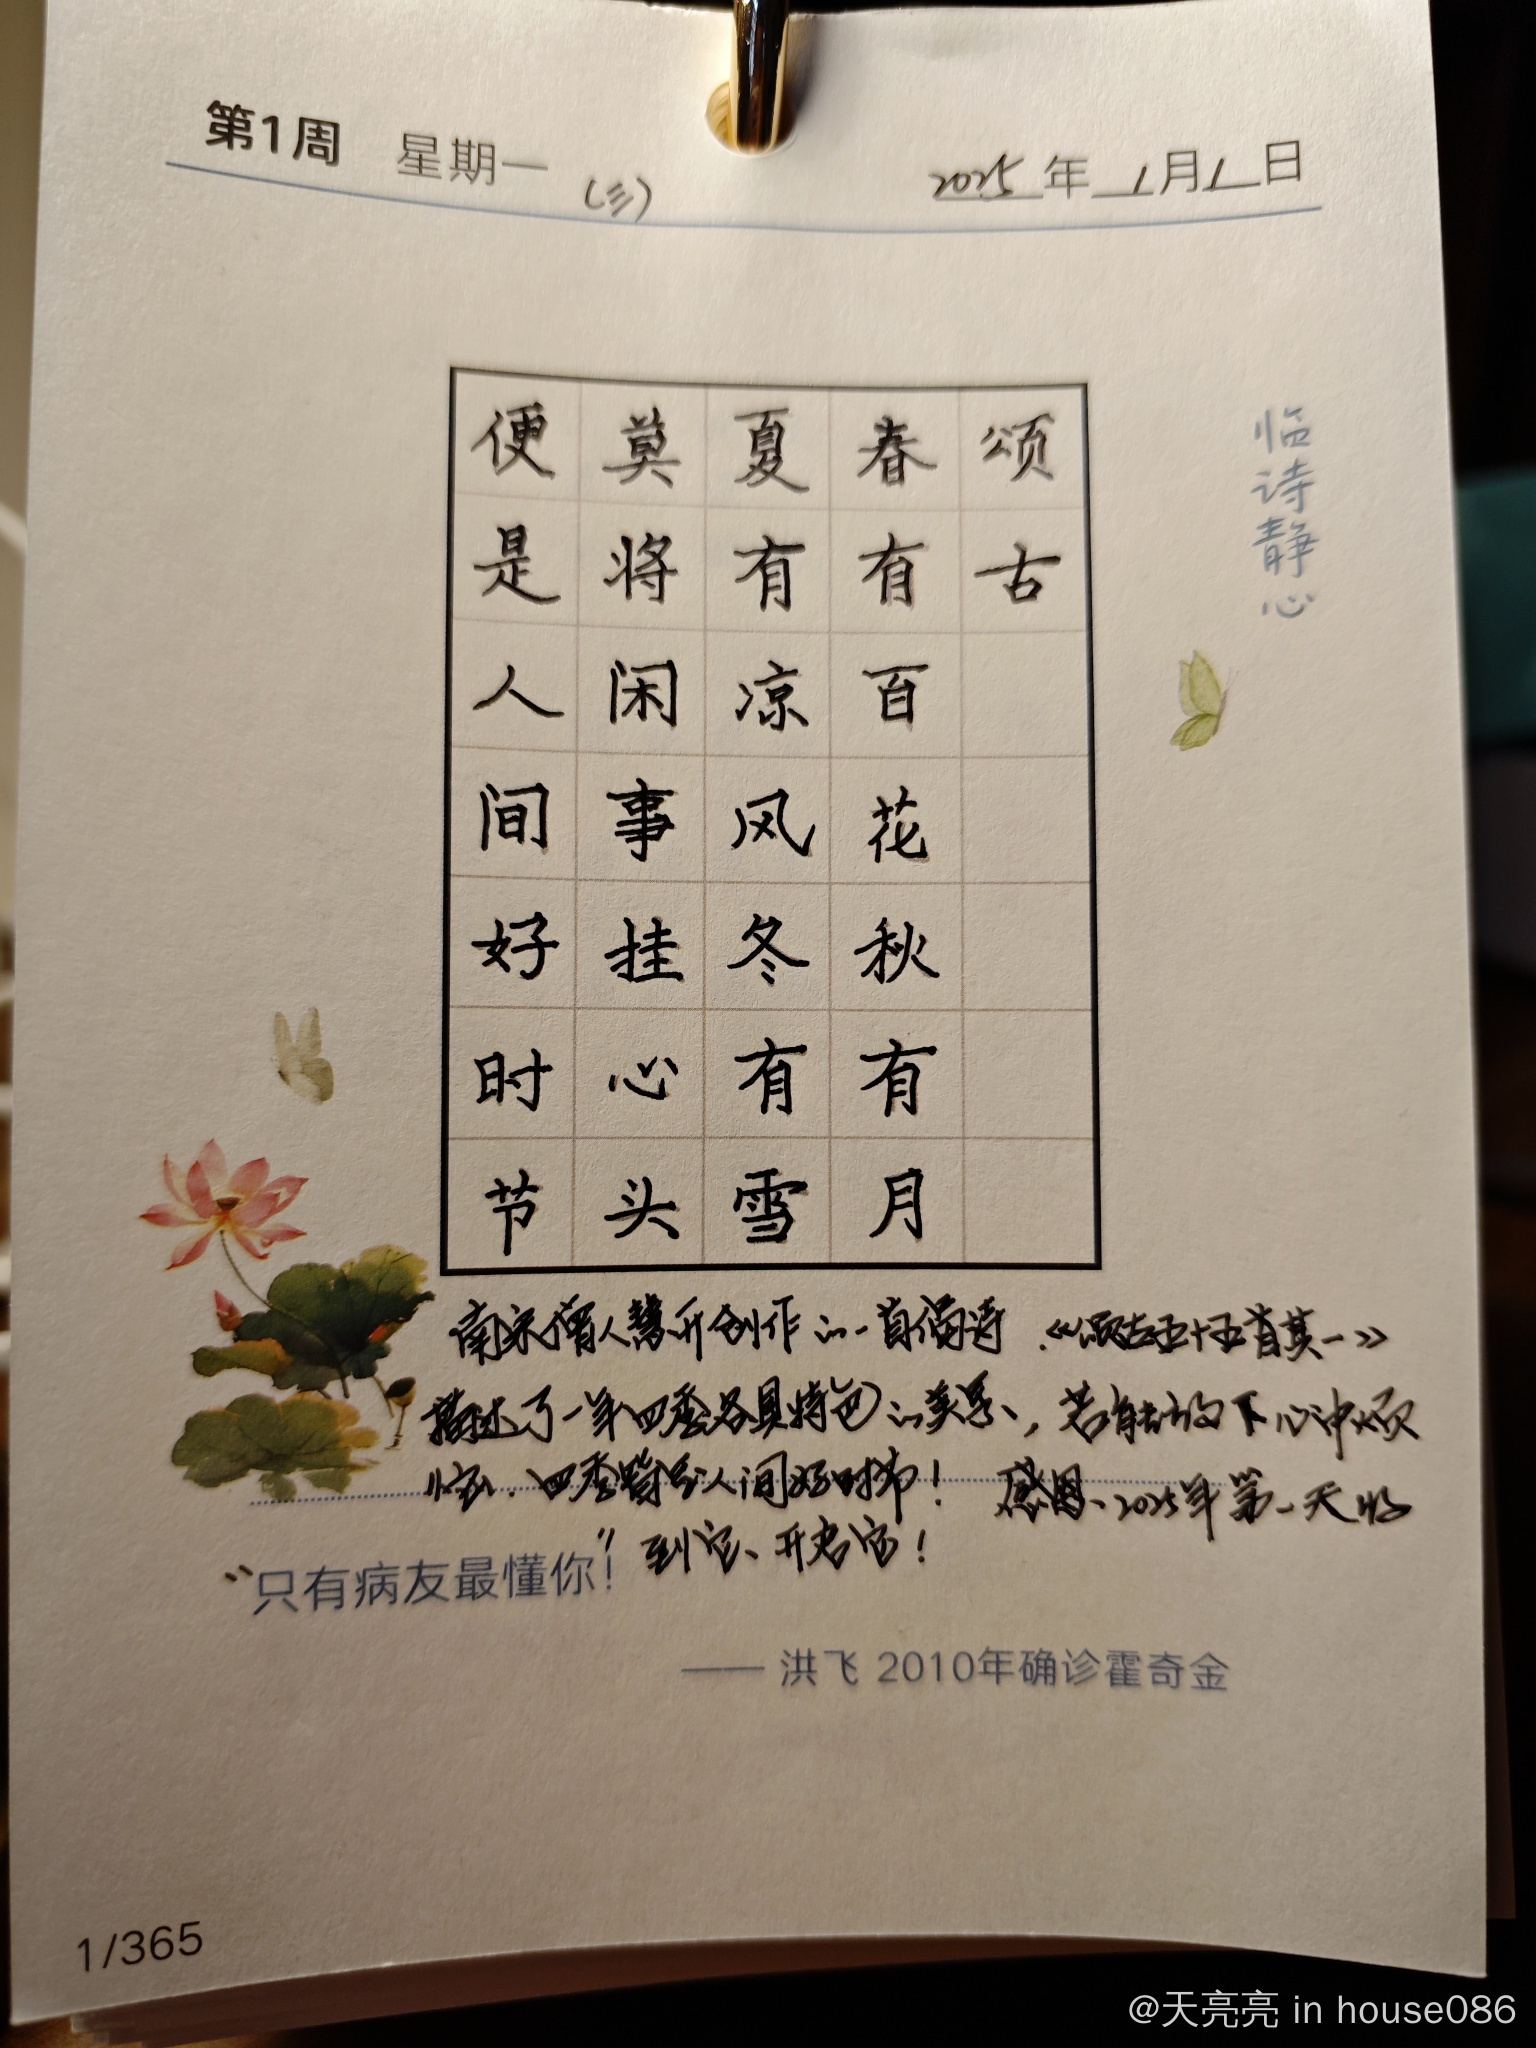 第1周 星期一 (三) 2025年1月1日
临诗静心
颂古
春有百花秋有月
夏有凉风冬有雪
莫将闲事挂心头
便是人间好时节
南宋僧人慧开创作的一首偈诗.《颂古五十五首其一》
描述了一年四季各具特色的美景、,若能放下心中烦
恼.四季皆是人间好时节! 感恩、2025年第一天收
到它、开启它!
“只有病友最懂你!”
—— 洪飞 2010年确诊霍奇金
1/365
@天亮亮 in house086